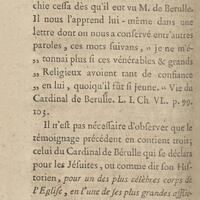 chie cessa dès qu'il eut vu M. de Berulle.
Il nous l'apprend lui-même dans une
lettre dont on nous a conservé entr'autres
paroles, ces mots suivans, „ je ne m'é-
„ tonnai plus si ces vénérables & grands
„ Religieux avoient tant de confiance
„ en lui, quoiqu'il fût si jeune. " Vie du
Cardinal de Berulle. L. I. Ch. VI. p. 99.
103.
Il n'est pas nécessaire d'observer que le
témoignage précédent en contient trois;
celui du Cardinal de Bérulle qui se déclara
pour les Jésuites, ou comme dit son His-
torien, pour un des plus célèbres corps de
l'Eglise, en l'une de ses plus grandes afflic-